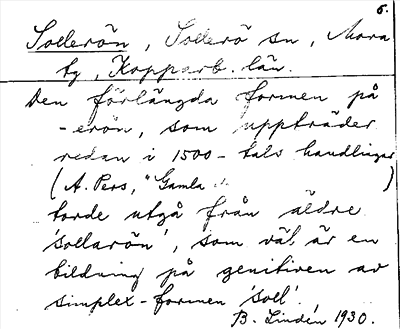 6.
Sollerön, Sollerö sn, Mora
tg, Kopparb. län.
Den förlängda formen på
-erön, som uppträder
redan i 1500-tals handlingar
(A. Pers, "Gamla )
torde utgå från äldre
'sollarön', som väl är en
bildning på genitiven av
simplex-formen 'soll'.
B. Lindén 1930.